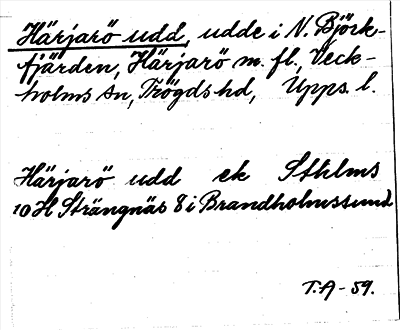 Härjarö udd, udde i N. Björk-
fjärden, Härjarö m. fl., Veck-
holms sn, Trögds hd, Upps. l.
Härjarö udd ek Sthlms
10H Strängnäs 8 i Brandholmssund
T.A - 59.